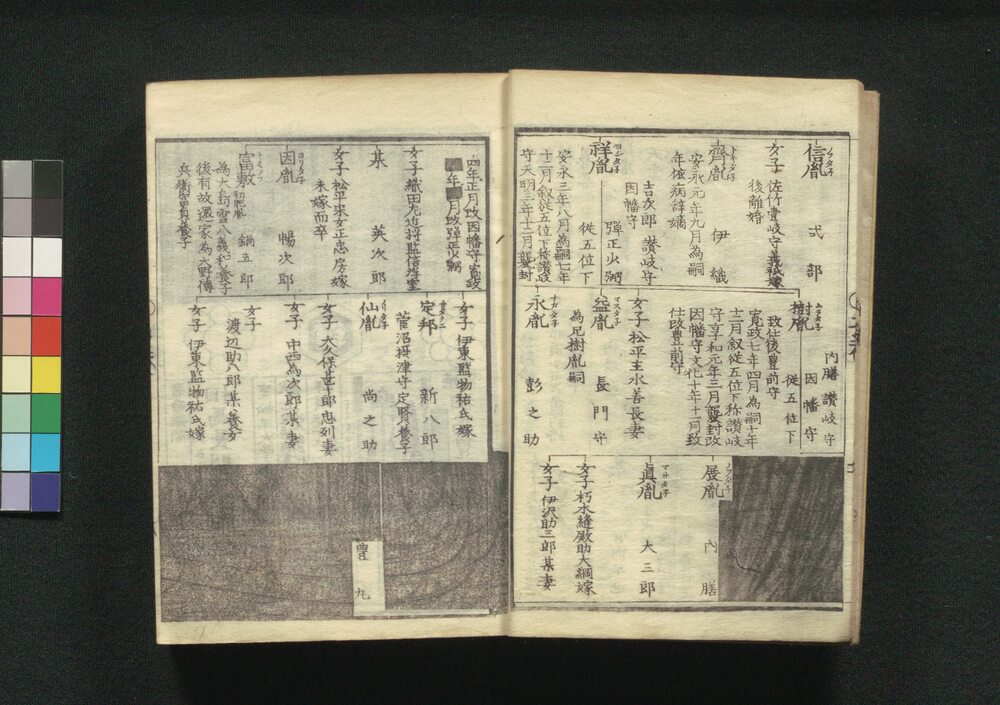 信胤
弍部
女子 佐竹壹岐守義祗嫁
後離婚
齊胤
伊織
安永元年九月為嗣
年依病辞嫡
祥胤
吉次郎 讃岐守
因幡守
弾正少弼
従五位下
安永三年八月為嗣七年
十二月叙従五位下称讃岐
守天明三年十二月襲封
樹胤
内膳 讃岐守
因幡守
従五位下
致仕後豊前守
寛政七年四月為嗣十年
十二月叙従五位下称讃岐
守享和元年三月襲封改
因幡守文化十年十二月致
仕改豊前守
女子 松平主水善長妻
益胤
長門守
為兄樹胤嗣
永胤
彭之助
内膳
眞胤
大三郎
女子 朽木縫殿助大綱嫁
女子 伊沢助三郎某妻
四年正月改因幡守寛政
年 月改弾正少弼
女子 織田左近将監信
某
英次郎
女子 松平采女正忠房嫁
未嫁而卒
因胤
暢次郎
富敷
鍋五郎
為大島雲八義和養子
後有故還家為大野傳
兵衛富貴養子
女子 伊東監物祐氏嫁
定邦
新八郎
菅沼摂津守定賢養子
仙胤
尚之助
女子 大久保甚十郎忠列妻
女子 中西為次郎某妻
女子
渡辺助八郎某養女
女子 伊東監物祐氏嫁
豊丸